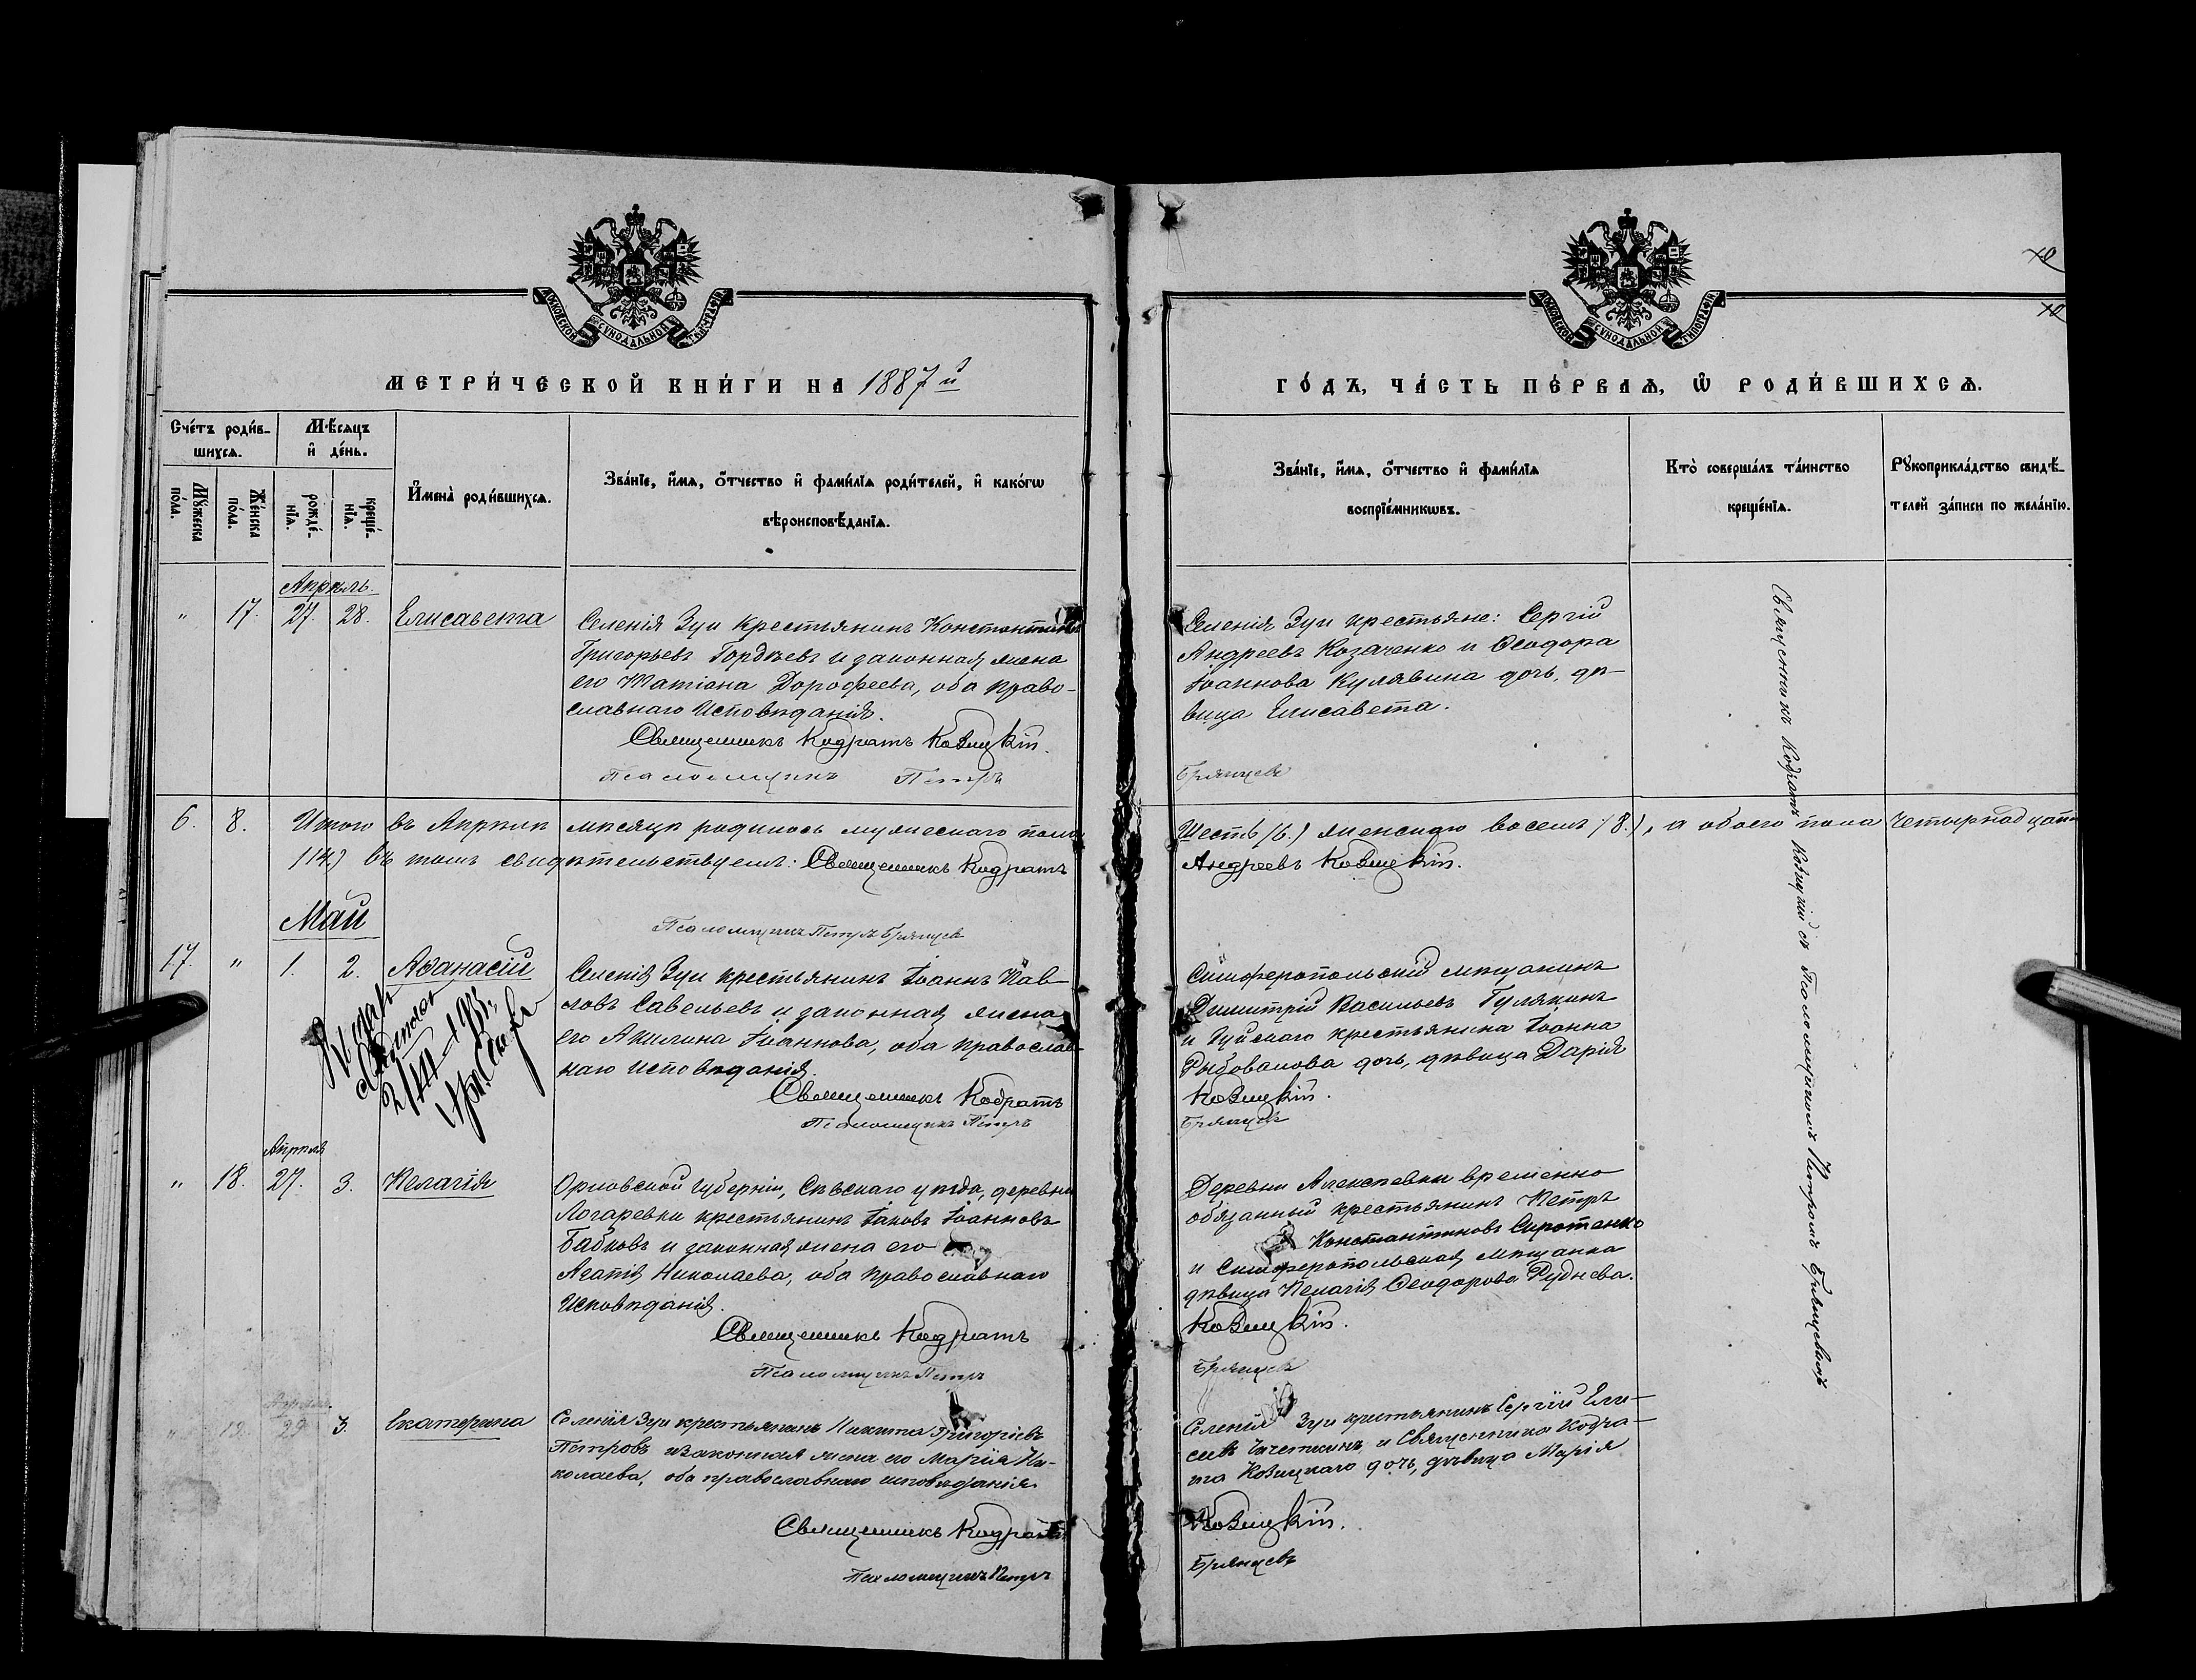 МОСКОВСКОЙ СѴНОДАЛЬНОЙ ТИПОГРАФІИ
МЕТРИ́ЧЕСКОЙ КНИ́ГИ НА 1887 й
Сче́тъ роди́в-
шихсѧ.
Мѣ́сѧцъ
и҆ де́нь.
Мꙋ́жеска
по́ла.
Же́нска
по́ла.
рожде́-
нїѧ.
креще́-
нїѧ.
И҆мена̀ роди́вшихсѧ.
Зва́нїе, и҆́мѧ, ѻ҆́тчество и҆ фами́лїѧ роди́телей, и҆ како́гѡ
вѣроисповѣ́данїѧ.
Апрѣль
" 17. 27. 28. Елисавета
Селенія Зуи крестьянинъ Константинъ
Григорьевъ Гордѣевъ и законная жена
его Татіана Дорофеева, оба право-
славнаго исповѣданія.
Священникъ Кодратъ Ковицкій.
Псаломщикъ Петръ
6. 8. Итого въ Апрѣлѣ мѣсяцѣ родилось мужескаго пола
(14) въ томъ свидѣтельствуемъ: Священникъ Кодратъ
Псаломщикъ Петръ Брянцевъ
Май
17. " 1. 2. Аѳанасій
Селенія Зуи крестьянинъ Іоаннъ Пав-
ловъ Савельевъ и законная жена
его Акилина Іоаннова, оба православ-
наго исповѣданія.
Священникъ Кодратъ
Псаломщикъ Петръ
Апрѣля
" 18. 27. 3. Пелагія
Орловской губерніи, Сѣвскаго уѣзда, деревни
Погаревки крестьянинъ Іаковъ Іоанновъ
Бабковъ и законная жена его
Агапія Николаева, оба православнаго
исповѣданія.
Священникъ Кодратъ
Псаломщикъ Петръ
Апрѣль
" 19. 29. 3. Екатерина
Селенія Зуи крестьянинъ Никита Григоріевъ
Петровъ и законная жена его Марія Ни-
колаева, оба православнаго исповѣданія.
Священникъ Кодратъ
Псаломщикъ Петръ
МОСКОВСКОЙ СѴНОДАЛЬНОЙ ТИПОГРАФІИ
ГО́ДЪ, ЧА́СТЬ ПЕ́РВАѦ, Ѡ҆ РОДИ́ВШИХСѦ.
Зва́нїе, и҆́мѧ, ѻ҆́тчество и҆ фами́лїѧ
воспрїе́мникѡвъ.
Кто̀ соверша́лъ та́инство
креще́нїѧ.
Рꙋкоприкла́дство свидѣ́-
телей за́писи по жела́нїю.
Селенія Зуи крестьяне: Сергій
Андреевъ Козаченко и Ѳеодора
Іоаннова Кулявина дочь, дѣ-
вица Елисавета.
Брянцевъ
Шесть (6.) женскаго восемь (8.), а обоего пола четырнадцать
Андреевъ Ковицкій.
Симферопольскій мѣщанинъ
Димитрій Васильевъ Гулякинъ
и Зуйскаго крестьянина Іоанна
Рыбовалова дочь, дѣвица Дарія
Ковицкій.
Брянцевъ
Деревни Алексѣевки временно
обязанный крестьянинъ Петръ
Константиновъ Сиротенко
и Симферопольская мѣщанка
дѣвица Пелагія Ѳеодорова Руднева.
Ковицкій.
Брянцевъ
Селенія Зуи крестьянинъ Сергій Ели-
сеевъ и Священника Кодра-
та Ковицкаго дочь, дѣвица Марія
Ковицкій.
Брянцевъ
Священникъ Кодратъ Ковицкій съ Псаломщикомъ Петромъ Брянцевымъ